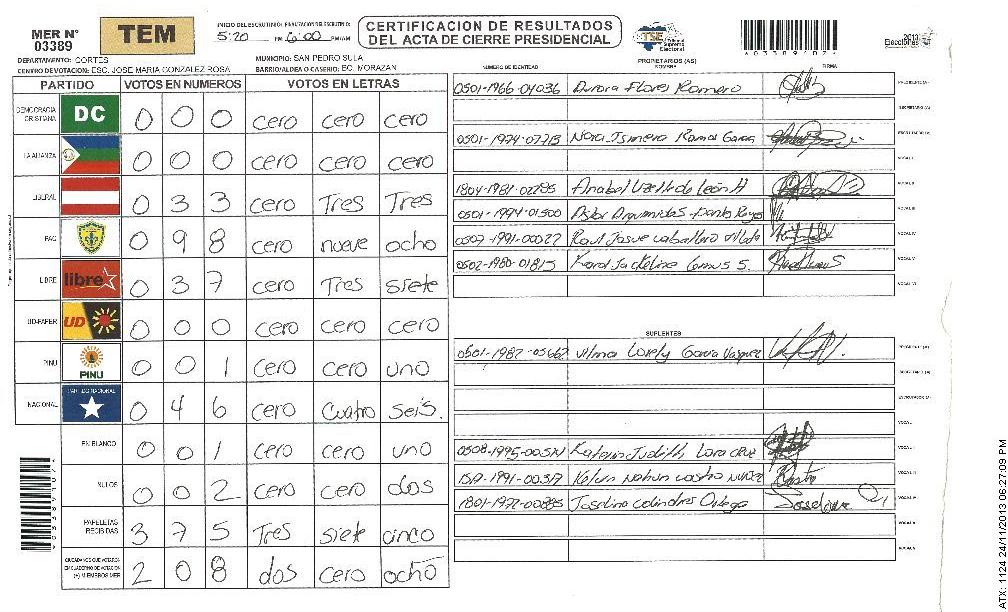 MER N° 03389
TEM
INICIO DEL ESCRUTINIO: FINALIZACION DEL ESCRUTINIO:
5:20 PM 6:00 PM/AM
CERTIFICACION DE RESULTADOS
DEL ACTA DE CIERRE PRESIDENCIAL
TSE Tribunal Supremo Electoral
03389107
2013
Elecciones
DEPARTAMENTO: CORTES
MUNICIPIO: SAN PEDRO SULA
CENTRO DE VOTACION: ESC. JOSE MARIA GONZALEZ ROSA
BARRIO/ALDEA O CASERIO: BO. MORAZAN
PARTIDO VOTOS EN NUMEROS VOTOS EN LETRAS
DEMOCRACIA CRISTIANA DC 0 0 0 cero cero cero
LA ALIANZA 0 0 0 cero cero cero
LIBERAL 0 3 3 cero Tres Tres
PAC 0 9 8 cero nueve ocho
LIBRE libre 0 3 7 cero Tres siete
UD-FAPER UD 0 0 0 cero cero cero
PINU PINU 0 0 1 cero cero uno
NACIONAL PARTIDO NACIONAL 0 4 6 cero cuatro seis.
EN BLANCO 0 0 1 cero cero uno
NULOS 0 0 2 cero cero dos
PAPELETAS RECIBIDAS 3 7 5 Tres siete cinco
CIUDADANOS QUE VOTARON EN CUADERNO DE VOTACION (+) MIEMBROS MER 2 0 8 dos cero ocho
03389107
PROPIETARIOS (AS)
NUMERO DE IDENTIDAD NOMBRE FIRMA
0501-1966-04036 Aurora Flores Romero PRESIDENTE (A)
SECRETARIO (A)
0501-1974-07713 Ramos ESCRUTADOR (A)
VOCAL I
1804-1981-02295 Anabel de León H VOCAL II
0501-1994-01500 Reyes VOCAL III
0507-1991-00022 Raul Josue caballero VOCAL IV
0502-1980-01815 Karol Jackeline Lemus S. VOCAL V
VOCAL VI
SUPLENTES
0501-1982-05662 Vilma Lorely Garcia Vasquez PRESIDENTE (A)
SECRETARIO (A)
ESCRUTADOR (A)
VOCAL I
Katerin Judith Lara cruz VOCAL II
Kelvin Nahun castro nuñez VOCAL III
1801-1972-00885 Joselina colindres Ortega VOCAL IV
VOCAL V
VOCAL VI
ATX: 1124 24/11/2013 06:27:09 PM